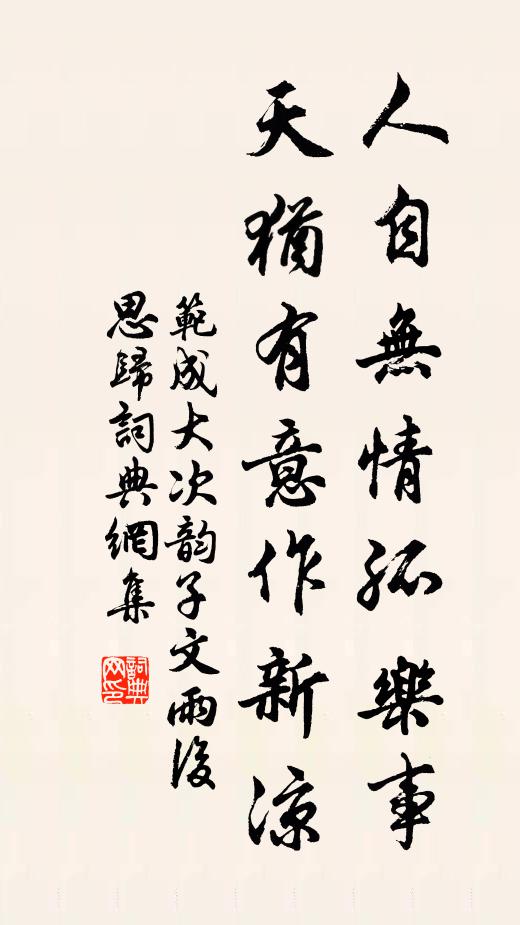 人自無情孤樂事
天猶有意作新涼
範成大次韵子文雨後
思歸詞典網集
詞典網印